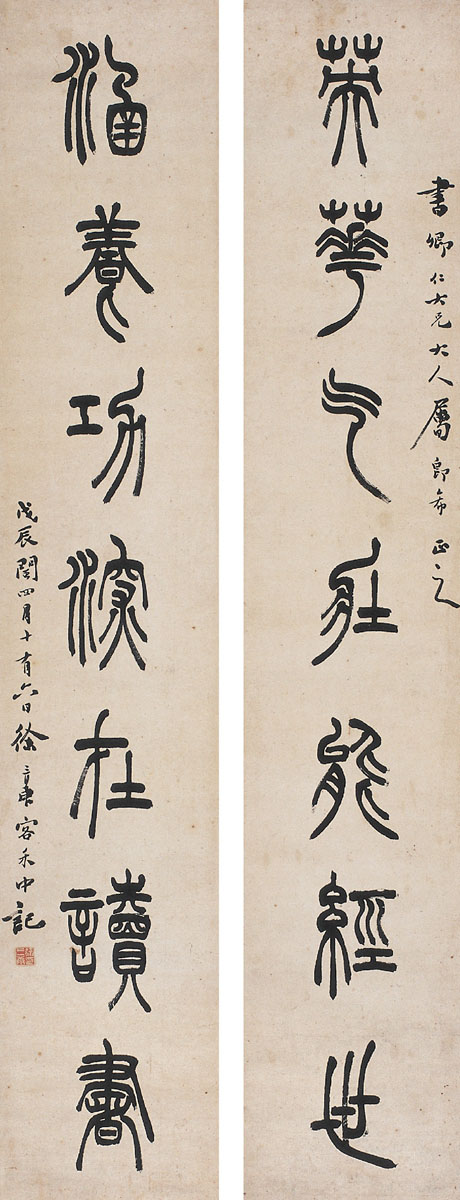 書卿仁大兄大人屬即希正之
英華气壯能經世
涵養功深在讀書
戊辰閏四月十有六日徐三庚客禾中記